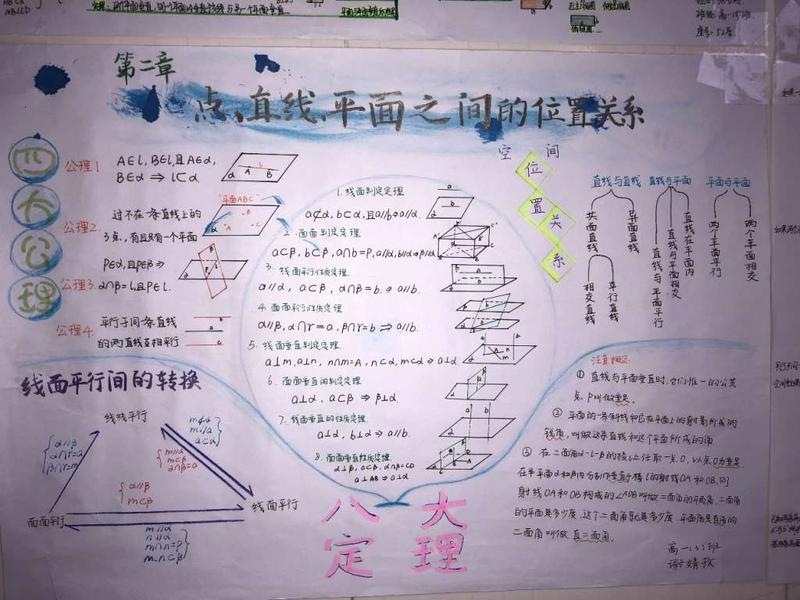 第二章
点、直线、平面之间的位置关系
四大公理
公理1
A∈l, B∈l, 且A∈α,
B∈α ⇒ l⊂α
公理2.
过不在一条直线上的
3点,有且只有一个平面
"平面ABC"
公理3.
P∈α,且P∈β⇒
α∩β=l,且P∈l.
公理4.
平行于同一条直线
的两直线互相平行
1. 线面判定定理
a⊄α, b⊂α, 且a//b⇒a//α.
2. 面面判定定理
a⊂β, b⊂β, a∩b=P, a//α, b//α⇒β//α
3. 线面平行性质定理
a//α, a⊂β, α∩β=b. ⇒ a//b.
4. 面面平行性质定理
α//β, α∩γ=a, β∩γ=b ⇒ a//b.
5. 线面垂直判定定理
a⊥m, a⊥n, n∩m=A, n⊂α, m⊂α ⇒ a⊥α
6. 面面垂直判定定理
a⊥α, a⊂β ⇒ β⊥α
7. 线面垂直的性质定理
a⊥α, b⊥α ⇒ a//b.
8. 面面垂直性质定理
α⊥β, α⊂β, α∩β=CD
a⊥AB ⇒ a⊥α
八大
定理
空间
位置关系
直线与直线 直线与平面 平面与平面
共面直线
异面直线
相交直线
平行直线
直线与平面平行
直线与平面相交
直线在平面内
两个平面平行
两个平面相交
线面平行间的转换
线线平行
线面平行
面面平行
α//β
α∩γ=a
β∩γ=b
m⊄α
m//a
a⊂α
m//α
m⊂β
α∩β=a
α//β
m⊂β
m//α
n//α
m∩n=P
m、n⊂β
注意概念.
① 直线与平面垂直时,它们惟一的公共
点, P叫做垂足.
② 平面的一条斜线和它在平面上的射影所成的
锐角,叫做这条直线和这个平面所成的角
③ 在二面角α-l-β的棱l上任取一点O, 以点O为垂足,
在半平面α和β内分别作垂直于棱l的射线OA和OB,则
射线OA和OB构成的∠AOB叫做二面角的平面角.二面角
的平面是多少度,这个二面角就是多少度.平面角是直角的
二面角叫做直二面角.
高一